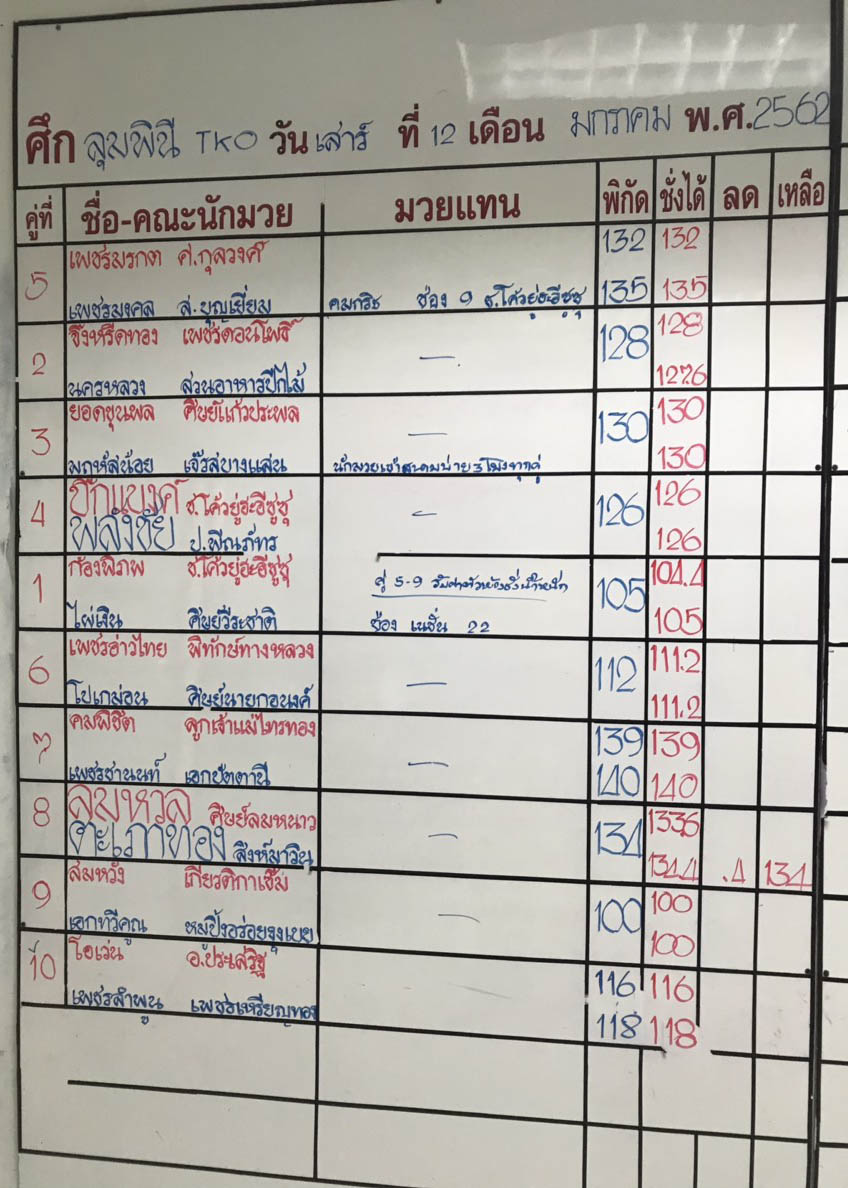 ศึก ลุมพินี TKO วัน เสาร์ ที่ 12 เดือน มกราคม พ.ศ. 2562
คู่ที่ ชื่อ-คณะนักมวย มวยแทน พิกัด ชั่งได้ ลด เหลือ
5 เพชรมรกต ศ.กุลวงศ์ 132 132
เพชรมงคล ส.บุญเยี่ยม คมกริช ช่อง 9 ช.โค้วยู่ฮะอีซูซุ 135 135
2 จิงหรีดทอง เพชรดอนโพธิ์ — 128 128
นครหลวง สวนอาหารปีกไม้ 127.6
3 ยอดขุนพล ศิษย์แก้วประพล — 130 130
มฤหัสน้อย เจ๊รสบางแสน นักมวยเข้าสนามบ่าย 3 โมงทุกคู่ 130
4 บิ๊กแบงค์ ช.โค้วยู่ฮะอีซูซุ — 126 126
พลังชัย ป.พีณภัทร 126
1 ก้องพิภพ ช.โค้วยู่ฮะอีซูซุ คู่ 5-9 105 104.4
ไผ่เงิน ศิษย์วีระชาติ ช่อง เนชั่น 22 105
6 เพชรอ่าวไทย พิทักษ์ทางหลวง — 112 111.2
โปเกม่อน ศิษย์นายกอนงค์ 111.2
7 คมพิชิต ลูกเจ้าแม่ไทรทอง — 139 139
เพชรชานนท์ เอกปัตตานี 140 140
8 ลมหวล ศิษย์ลมหนาว — 134 133.6
ตะเภาทอง สิงห์มาวิน 134.4 .4 134
9 สมหวัง เกียรติกาเซ็ม — 100 100
เอกทวีคูณ หมูปิ้งอร่อยจุงเบย 100
10 โอเว่น อ.ประเสริฐ 116 116
เพชรลำพูน เพชรเหรียญทอง 118 118